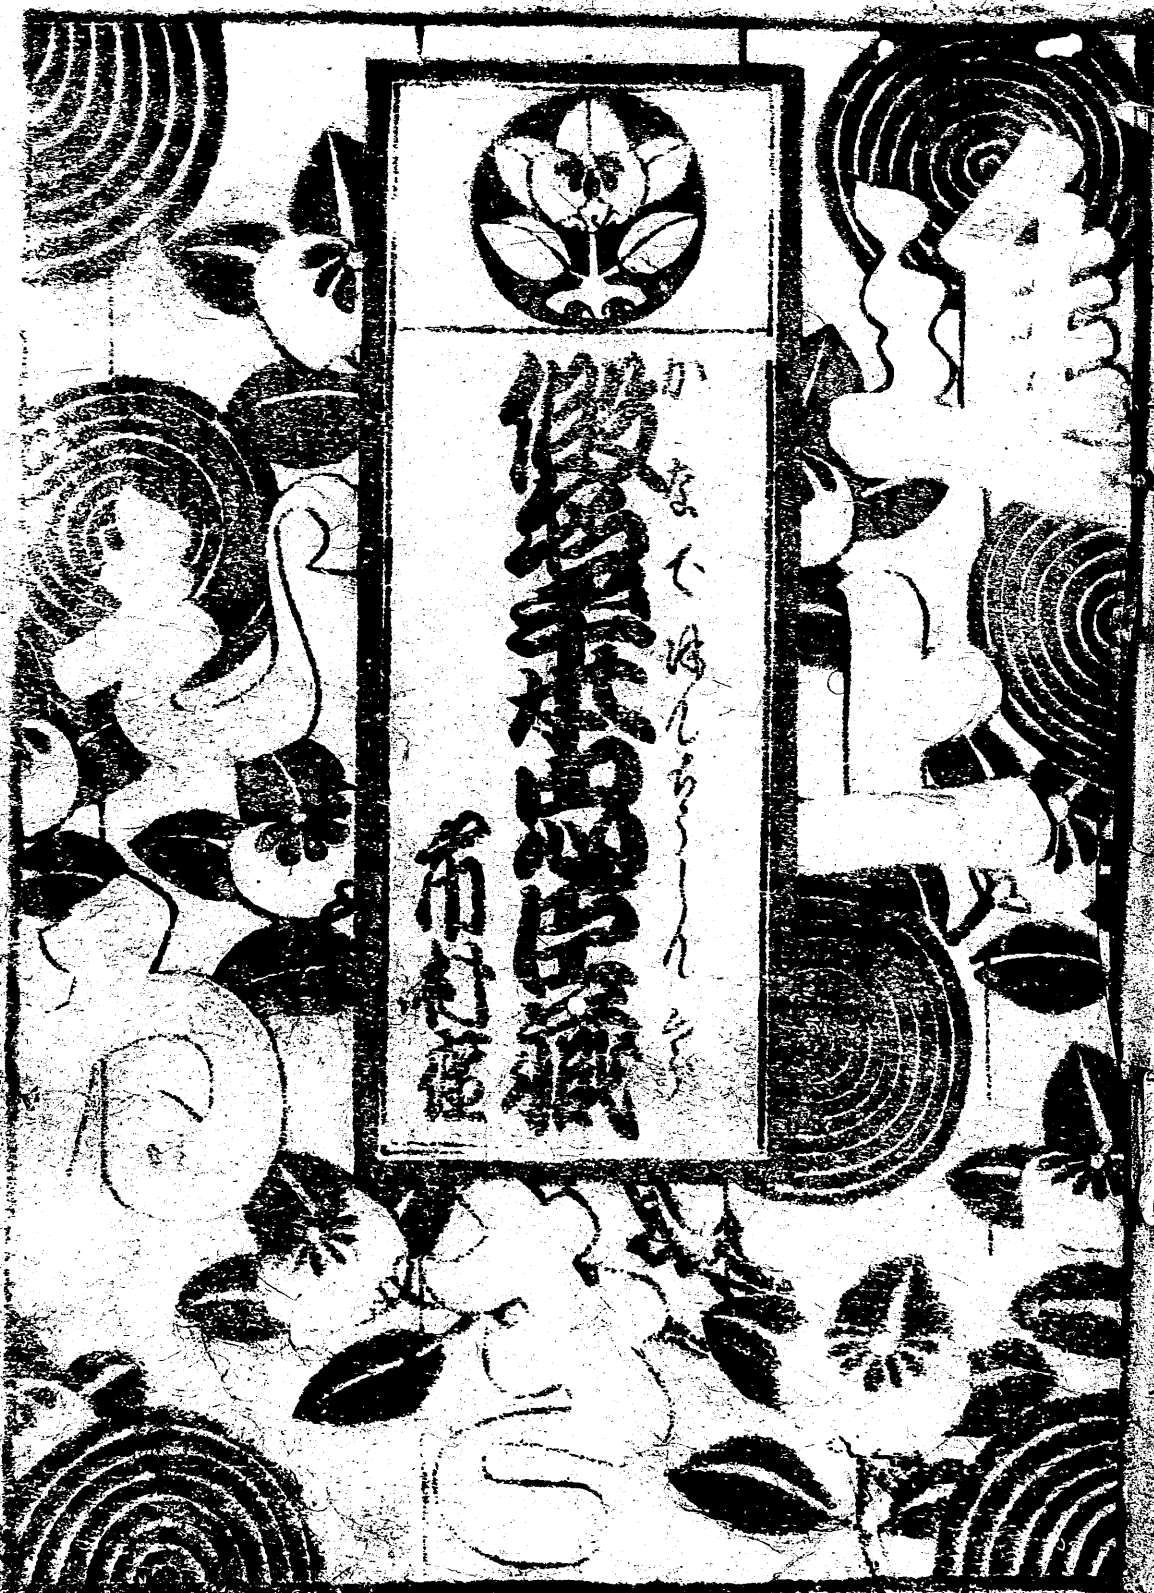 かなでほんちうしんぐら
假名手本忠臣藏